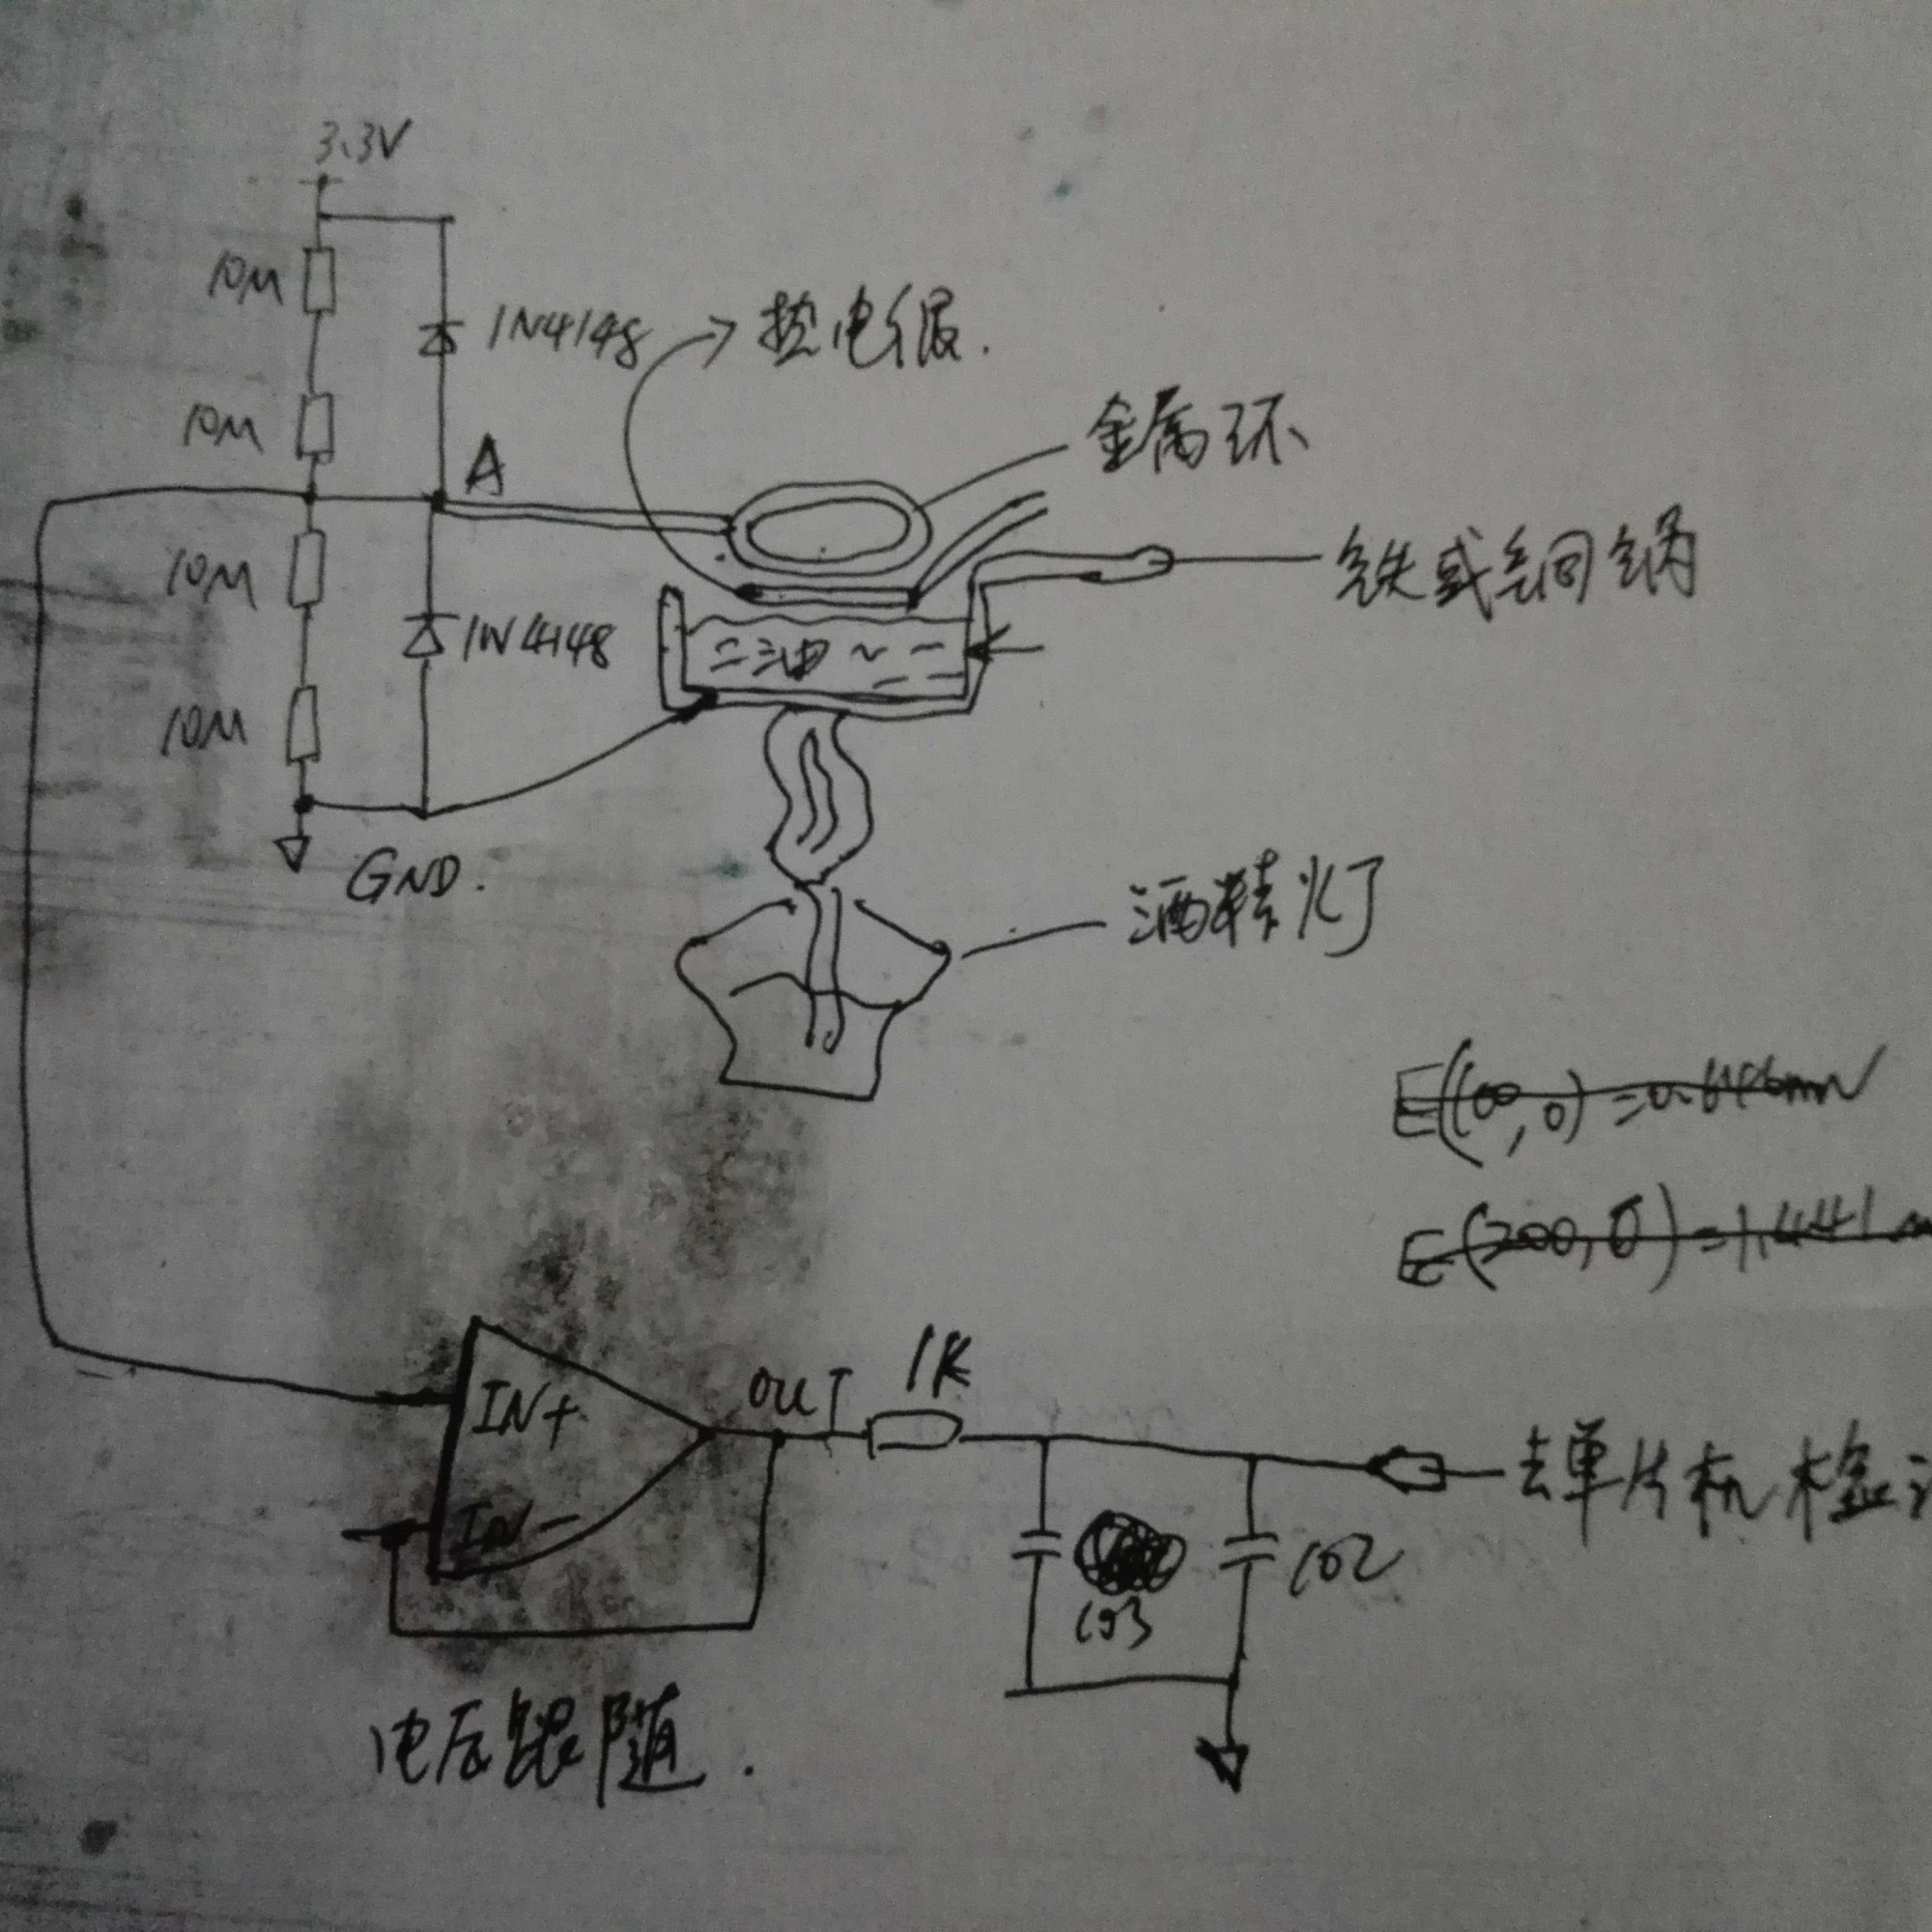 3.3V
10M
1N4148
热电偶.
10M
A
金属环
10M
铁或铜锅
1N4148
油
10M
GND.
酒精灯
E(100,0)=0.646mV
E(200,0)=1.441m
1K
OUT
IN+
去单片机检
IN-
102
103
电压跟随.